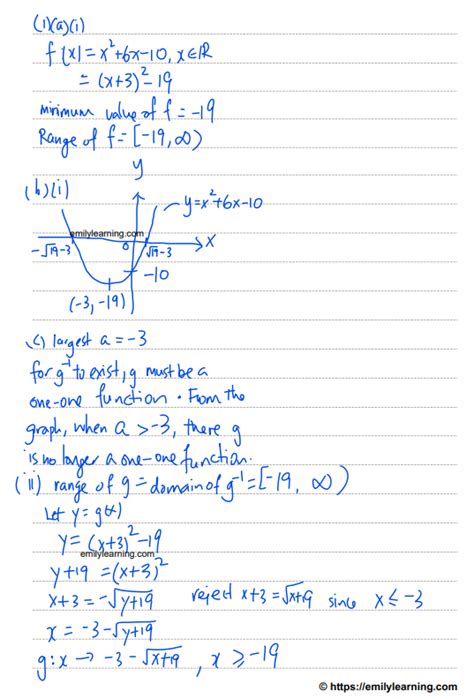 (1)(a)(i)
f(x) = x²+6x-10, x∈ℝ
= (x+3)²-19
minimum value of f = -19
Range of f = [-19, ∞)
y
(b)(i)
y=x²+6x-10
emilylearning.com
-√19-3
0
√19-3
x
-10
(-3, -19)
(c) largest a = -3
for g⁻¹ to exist, g must be a
one-one function. From the
graph, when a > -3, there g
is no longer a one-one function.
(ii) range of g = domain of g⁻¹ = [-19, ∞)
Let y = g(x)
y = (x+3)²-19
emilylearning.com
y+19 = (x+3)²
x+3 = -√y+19 reject x+3 = √x+19 since x ≤ -3
x = -3-√y+19
g: x → -3-√x+19, x ≥ -19
© https://emilylearning.com